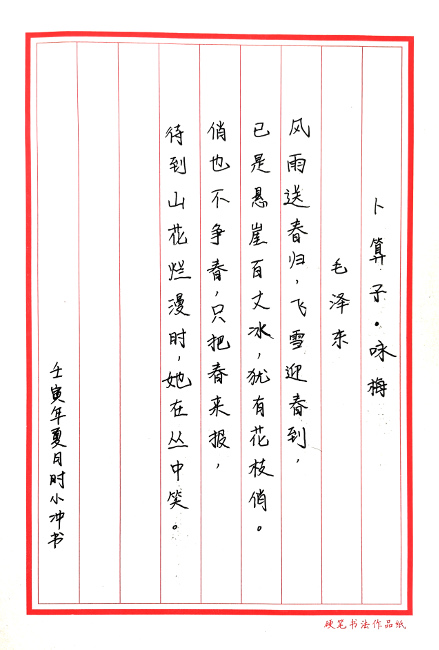 卜算子·咏梅
毛泽东
风雨送春归,飞雪迎春到,
已是悬崖百丈冰,犹有花枝俏。
俏也不争春,只把春来报,
待到山花烂漫时,她在丛中笑。
壬寅年夏月时小冲书
硬笔书法作品纸